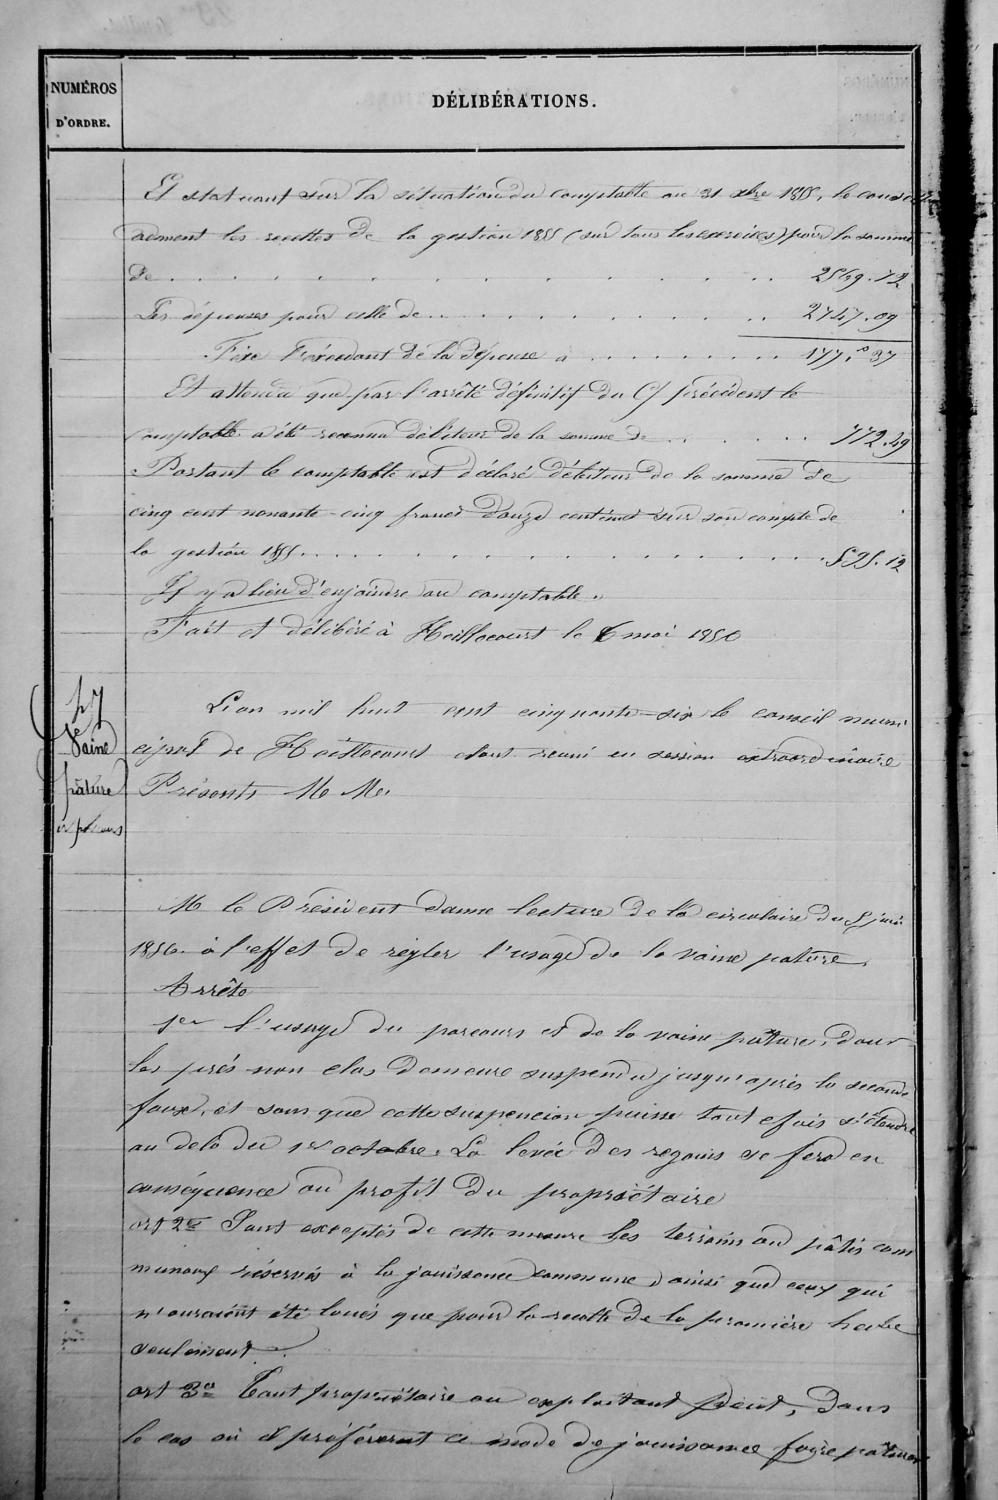 NUMÉROS
D'ORDRE.
DÉLIBÉRATIONS.
Et statuant sur la situation du comptable au 31 xbre 1855, le conseil
admet les recettes de la gestion 1855 (sur tous les exercices) pour la somme
de . . . . . . . . . . . . 2569.72
Les dépenses pour celle de . . . . . . . . 2747.09
Fixe l'excédant de la dépense à . . . . . . . 177.f 37
Et attendu que par l'arrêté définitif du Cf précédent le
comptable a été reconnu débiteur de la somme de . . . . . 772.49
Partant le comptable est déclaré débiteur de la somme de
cinq cent nonante-cinq francs douze centimes sur son compte de
la gestion 1855 . . . . . . . . . . . . 595.12
Il y a lieu d'enjoindre au comptable.
Fait et délibéré à Heillecourt le 6 mai 1856
57
Vaine
pâture
et parcours
L'an mil huit cent cinquante-six le conseil muni
cipal de Heillecourt étant réuni en session extraordinaire
Présents M. Mrs
M le Président donne lecture de la circulaire du 5 juin
1856 à l'effet de régler l'usage de la vaine pature.
Arrête
1er l'usage du parcours et de la vaine pâture, dans
les prés non clos demeure suspendu jusqu'après la seconde
faux, et sans que cette suspencion puisse toutefois s'étendre
au delà du 1er octobre. La levée des regains se fera en
conséquence au profit du propriétaire
art 2e Sont exceptés de cette mesure les terrains ou pâtis com
munaux réservés à la jouissance commune, ainsi que ceux qui
n'auraient été loués que pour la récolte de la première herbe
seulement.
art 3e Tout propriétaire ou exploitant peut, dans
le cas où il préférerait ce mode de jouissance faire pâturer